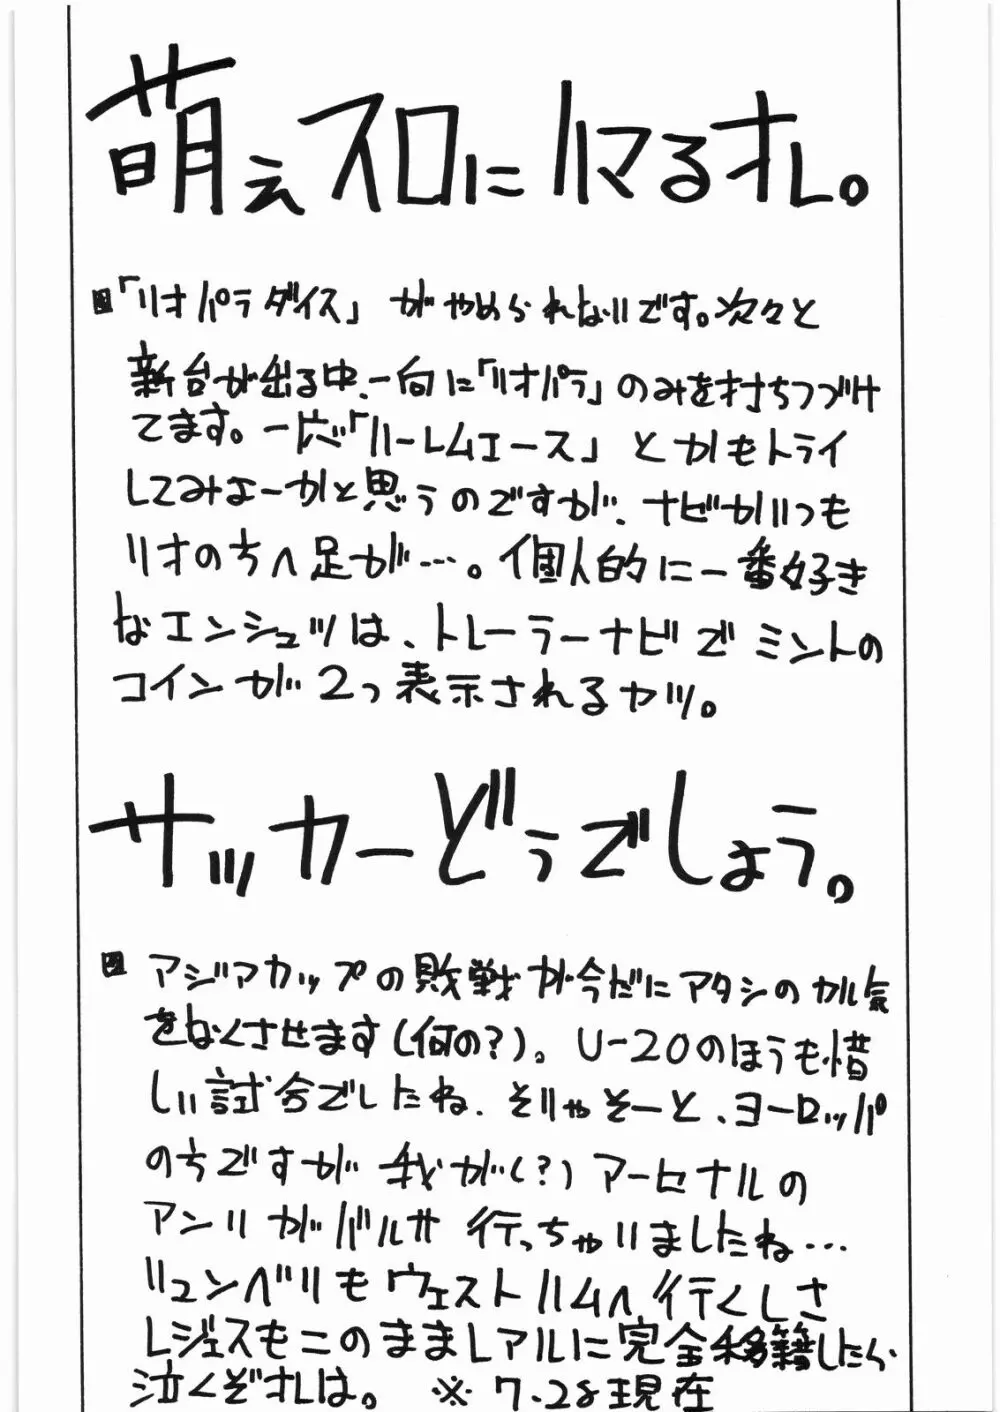 萌えスロにハマるオレ。
■「リオパラダイス」がやめられないです。次々と
新台が出る中、一向に「リオパラ」のみを打ちつづけ
てます。一応「ハーレムエース」とかもトライ
してみよーかと思うのですが、ナゼかいつも
リオの方へ足が…。個人的に一番好き
なエンシュツは、トレーラーナビでミントの
コインが2つ表示されるヤツ。
サッカーどうでしょう。
■アジアカップの敗戦が今だにアタシのヤル気
をなくさせます(何の?)。U-20のほうも惜
しい試合でしたね。そりゃそーと、ヨーロッパ
の方ですが我が(?)アーセナルの
アンリがバルサ行っちゃいましたね…
リュンベリもウェストハムへ行くしさ
レジェスもこのままレアルに完全移籍したら
泣くぞオレは。 ※7.28現在